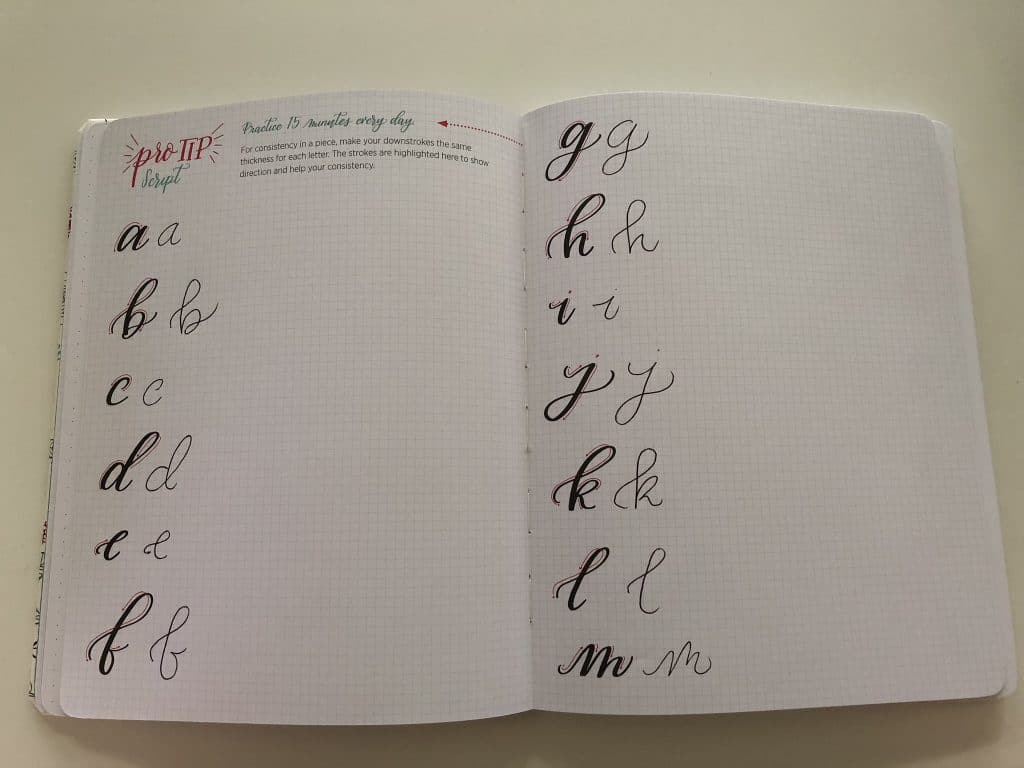 pro-TIP
Script
Practice 15 minutes every day.
For consistency in a piece, make your downstrokes the same
thickness for each letter. The strokes are highlighted here to show
direction and help your consistency.
a a
b b
c c
d d
e e
f f
g g
h h
i i
j j
k k
l l
m m